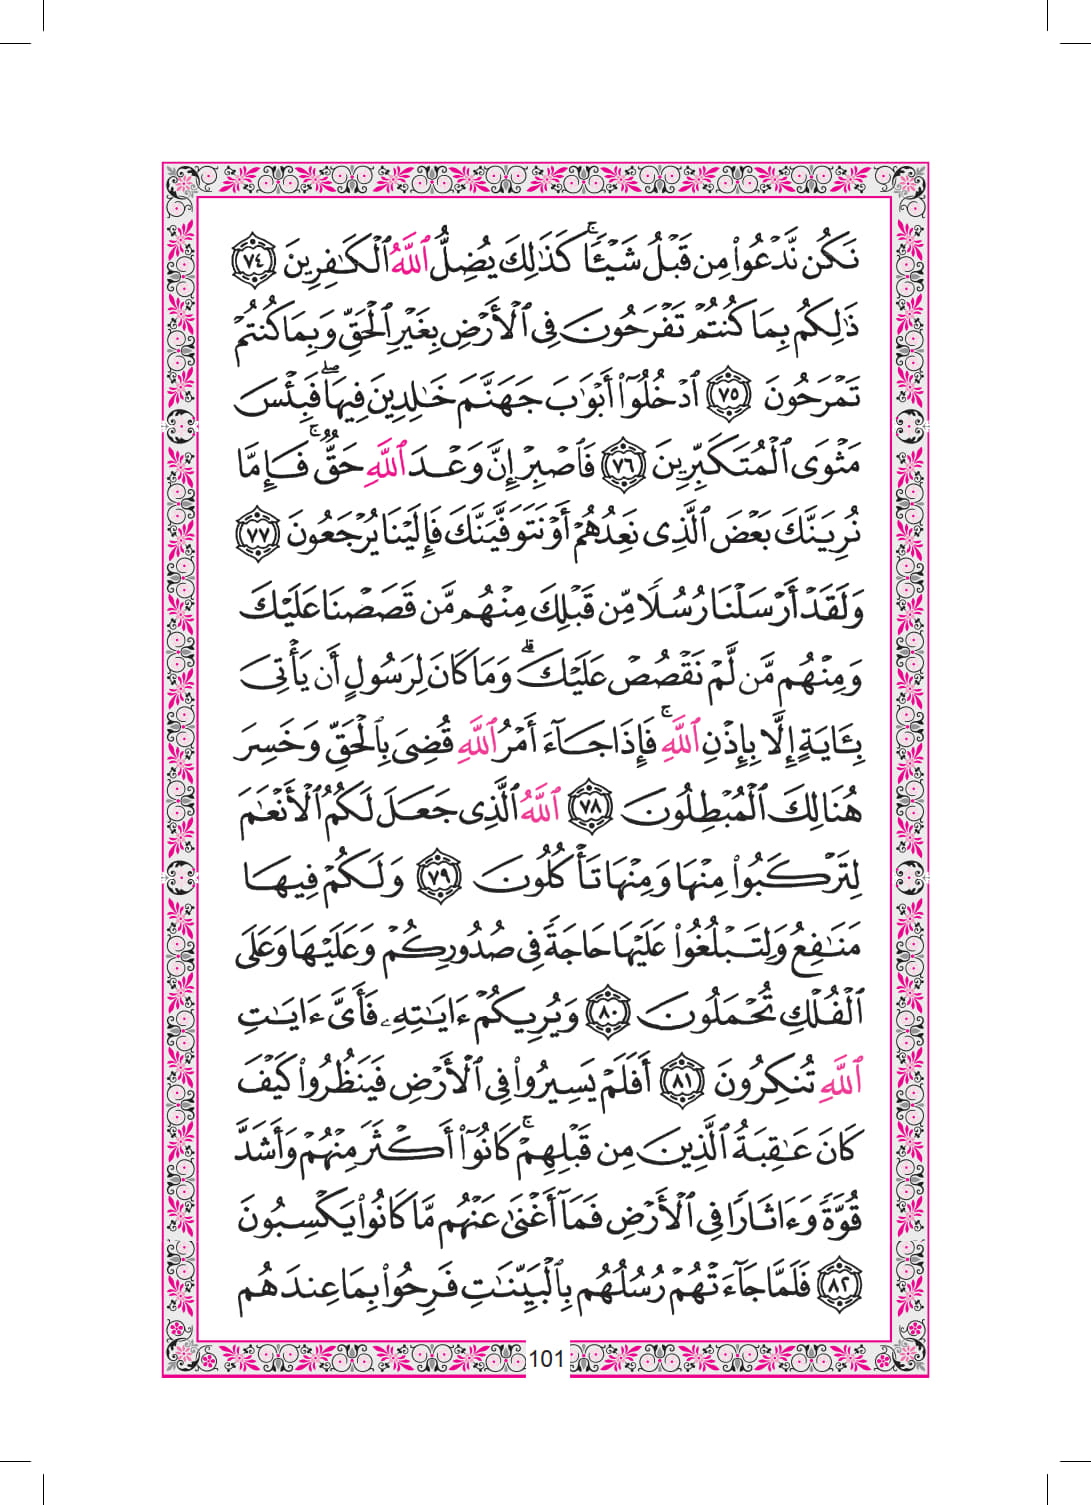 نَكُن نَّدْعُوا۟ مِن قَبْلُ شَيْـًٔا ۚ كَذَٰلِكَ يُضِلُّ ٱللَّهُ ٱلْكَـٰفِرِينَ ٧٤
ذَٰلِكُم بِمَا كُنتُمْ تَفْرَحُونَ فِى ٱلْأَرْضِ بِغَيْرِ ٱلْحَقِّ وَبِمَا كُنتُمْ
تَمْرَحُونَ ٧٥ ٱدْخُلُوٓا۟ أَبْوَٰبَ جَهَنَّمَ خَـٰلِدِينَ فِيهَا ۖ فَبِئْسَ
مَثْوَى ٱلْمُتَكَبِّرِينَ ٧٦ فَٱصْبِرْ إِنَّ وَعْدَ ٱللَّهِ حَقٌّ ۚ فَإِمَّا
نُرِيَنَّكَ بَعْضَ ٱلَّذِى نَعِدُهُمْ أَوْ نَتَوَفَّيَنَّكَ فَإِلَيْنَا يُرْجَعُونَ ٧٧
وَلَقَدْ أَرْسَلْنَا رُسُلًا مِّن قَبْلِكَ مِنْهُم مَّن قَصَصْنَا عَلَيْكَ
وَمِنْهُم مَّن لَّمْ نَقْصُصْ عَلَيْكَ ۗ وَمَا كَانَ لِرَسُولٍ أَن يَأْتِىَ
بِـَٔايَةٍ إِلَّا بِإِذْنِ ٱللَّهِ ۚ فَإِذَا جَآءَ أَمْرُ ٱللَّهِ قُضِىَ بِٱلْحَقِّ وَخَسِرَ
هُنَالِكَ ٱلْمُبْطِلُونَ ٧٨ ٱللَّهُ ٱلَّذِى جَعَلَ لَكُمُ ٱلْأَنْعَـٰمَ
لِتَرْكَبُوا۟ مِنْهَا وَمِنْهَا تَأْكُلُونَ ٧٩ وَلَكُمْ فِيهَا
مَنَـٰفِعُ وَلِتَبْلُغُوا۟ عَلَيْهَا حَاجَةً فِى صُدُورِكُمْ وَعَلَيْهَا وَعَلَى
ٱلْفُلْكِ تُحْمَلُونَ ٨٠ وَيُرِيكُمْ ءَايَـٰتِهِۦ فَأَىَّ ءَايَـٰتِ
ٱللَّهِ تُنكِرُونَ ٨١ أَفَلَمْ يَسِيرُوا۟ فِى ٱلْأَرْضِ فَيَنظُرُوا۟ كَيْفَ
كَانَ عَـٰقِبَةُ ٱلَّذِينَ مِن قَبْلِهِمْ ۚ كَانُوٓا۟ أَكْثَرَ مِنْهُمْ وَأَشَدَّ
قُوَّةً وَءَاثَارًا فِى ٱلْأَرْضِ فَمَآ أَغْنَىٰ عَنْهُم مَّا كَانُوا۟ يَكْسِبُونَ
٨٢ فَلَمَّا جَآءَتْهُمْ رُسُلُهُم بِٱلْبَيِّنَـٰتِ فَرِحُوا۟ بِمَا عِندَهُم
101